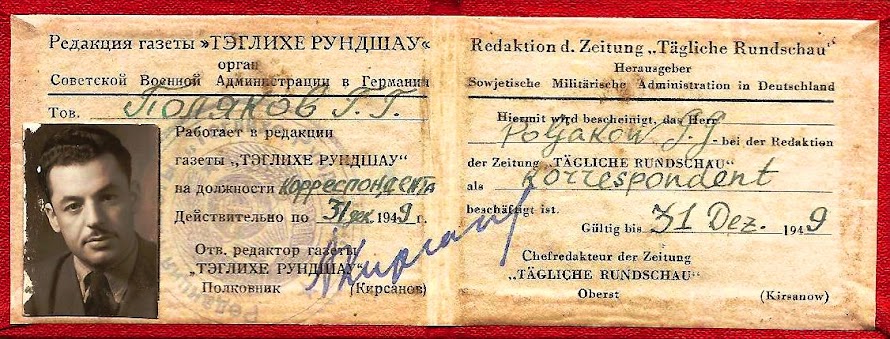 Редакция газеты »ТЭГЛИХЕ РУНДШАУ«
орган
Советской Военной Администрации в Германии
Тов. Поляков Г.Г.
Работает в редакции
газеты „ТЭГЛИХЕ РУНДШАУ“
на должности корреспондента
Действительно по 31 дек. 1949 г.
Отв. редактор газеты
„ТЭГЛИХЕ РУНДШАУ“
Полковник (Кирсанов)
Redaktion d. Zeitung „Tägliche Rundschau“
Herausgeber
Sowjetische Militärische Administration in Deutschland
Hiermit wird bescheinigt, das Herr
Poljakow bei der Redaktion
der Zeitung „TÄGLICHE RUNDSCHAU“
als Korrespondent
beschäftigt ist.
Gültig bis 31 Dez. 1949
Chefredakteur der Zeitung
„TÄGLICHE RUNDSCHAU“
Oberst (Kirsanow)